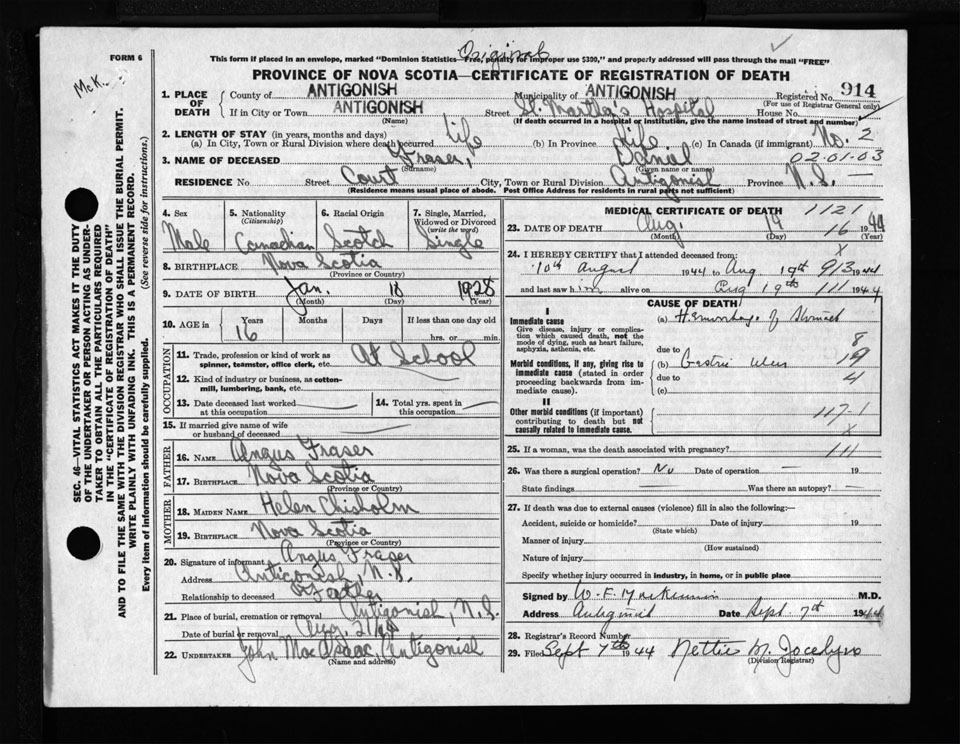 Original
FORM 6
This form if placed in an envelope, marked "Dominion Statistics—Free, penalty for improper use $300," and properly addressed will pass through the mail "FREE"
McK.
PROVINCE OF NOVA SCOTIA—CERTIFICATE OF REGISTRATION OF DEATH
1. PLACE OF DEATH
County of ANTIGONISH Municipality of ANTIGONISH Registered No. 914
(For use of Registrar General only)
If in City or Town ANTIGONISH (Name) Street St. Martha's Hospital House No.
(If death occurred in a hospital or institution, give the name instead of street and number)
2. LENGTH OF STAY (in years, months and days)
(a) In City, Town or Rural Division where death occurred Life (b) In Province Life (c) In Canada (if immigrant) No. 2
3. NAME OF DECEASED Fraser, (Surname) Danial (Given name or names) 02.01.03
RESIDENCE No. Street Court City, Town or Rural Division Antigonish Province N.S. —
(Residence means usual place of abode. Post Office Address for residents in rural parts not sufficient)
SEC. 46—VITAL STATISTICS ACT MAKES IT THE DUTY
OF THE UNDERTAKER OR PERSON ACTING AS UNDER-
TAKER TO OBTAIN ALL THE PARTICULARS REQUIRED
IN THE "CERTIFICATE OF REGISTRATION OF DEATH"
AND TO FILE THE SAME WITH THE DIVISION REGISTRAR WHO SHALL ISSUE THE BURIAL PERMIT.
WRITE PLAINLY WITH UNFADING INK. THIS IS A PERMANENT RECORD.
Every item of information should be carefully supplied. (See reverse side for instructions.)
4. Sex Male
5. Nationality (Citizenship) Canadian
6. Racial Origin Scotch
7. Single, Married, Widowed or Divorced (write the word) Single
8. BIRTHPLACE Nova Scotia
(Province or Country)
9. DATE OF BIRTH Jan. 18 1928
(Month) (Day) (Year)
10. AGE in Years 16 Months Days If less than one day old
hrs. or min.
OCCUPATION
11. Trade, profession or kind of work as spinner, teamster, office clerk, etc. At School
12. Kind of industry or business, as cotton-mill, lumbering, bank, etc.
13. Date deceased last worked at this occupation
14. Total yrs. spent in this occupation
15. If married give name of wife or husband of deceased
FATHER
16. NAME Angus Fraser
17. BIRTHPLACE Nova Scotia
(Province or Country)
MOTHER
18. MAIDEN NAME Helen Chisholm
19. BIRTHPLACE Nova Scotia
(Province or Country)
20. Signature of informant Angus Fraser
Address Antigonish, N.S.
Relationship to deceased Father
21. Place of burial, cremation or removal Antigonish, N.S.
Date of burial or removal Aug. 21/44
22. UNDERTAKER John MacIsaac, Antigonish
(Name and address)
MEDICAL CERTIFICATE OF DEATH 1121
23. DATE OF DEATH Aug. 19 16 1944
(Month) (Year)
24. I HEREBY CERTIFY that I attended deceased from: X
10th August 1944 to Aug 19th 913 1944
and last saw him alive on Aug 19th 111 1944
CAUSE OF DEATH
I
Immediate cause
Give disease, injury or complication which caused death, not the mode of dying, such as heart failure, asphyxia, asthenia, etc.
(a) Hemorrhage of Stomach
8
due to
Morbid conditions, if any, giving rise to immediate cause (stated in order proceeding backwards from immediate cause).
(b) Gastric Ulcer 19
due to 4
(c)
II
Other morbid conditions (if important) contributing to death but not causally related to immediate cause.
117-1
X
25. If a woman, was the death associated with pregnancy? 111
26. Was there a surgical operation? No Date of operation — 19
State findings Was there an autopsy? —
27. If death was due to external causes (violence) fill in also the following:—
Accident, suicide or homicide? Date of injury 19
(State which)
Manner of injury
(How sustained)
Nature of injury
Specify whether injury occurred in industry, in home, or in public place
Signed by W. F. MacKinnon M.D.
Address Antigonish Date Sept. 7th 1944
28. Registrar's Record Number
29. Filed Sept 7th 1944 Nettie M. Jocelyn
(Division Registrar)